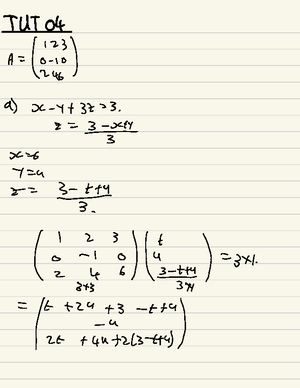 TUT 04
A = (1 2 3
0 -1 0
2 4 6)
a) x - y + 3z = 3.
z = (3 - x + y)/3
x = t
y = u
z = (3 - t + u)/3.
(1 2 3
0 -1 0
2 4 6) (t
u
(3 - t + u)/3) = 3×1.
3×3 3×1
= (t + 2u + 3 - t + u
-u
2t + 4u + 2(3 - t + u))